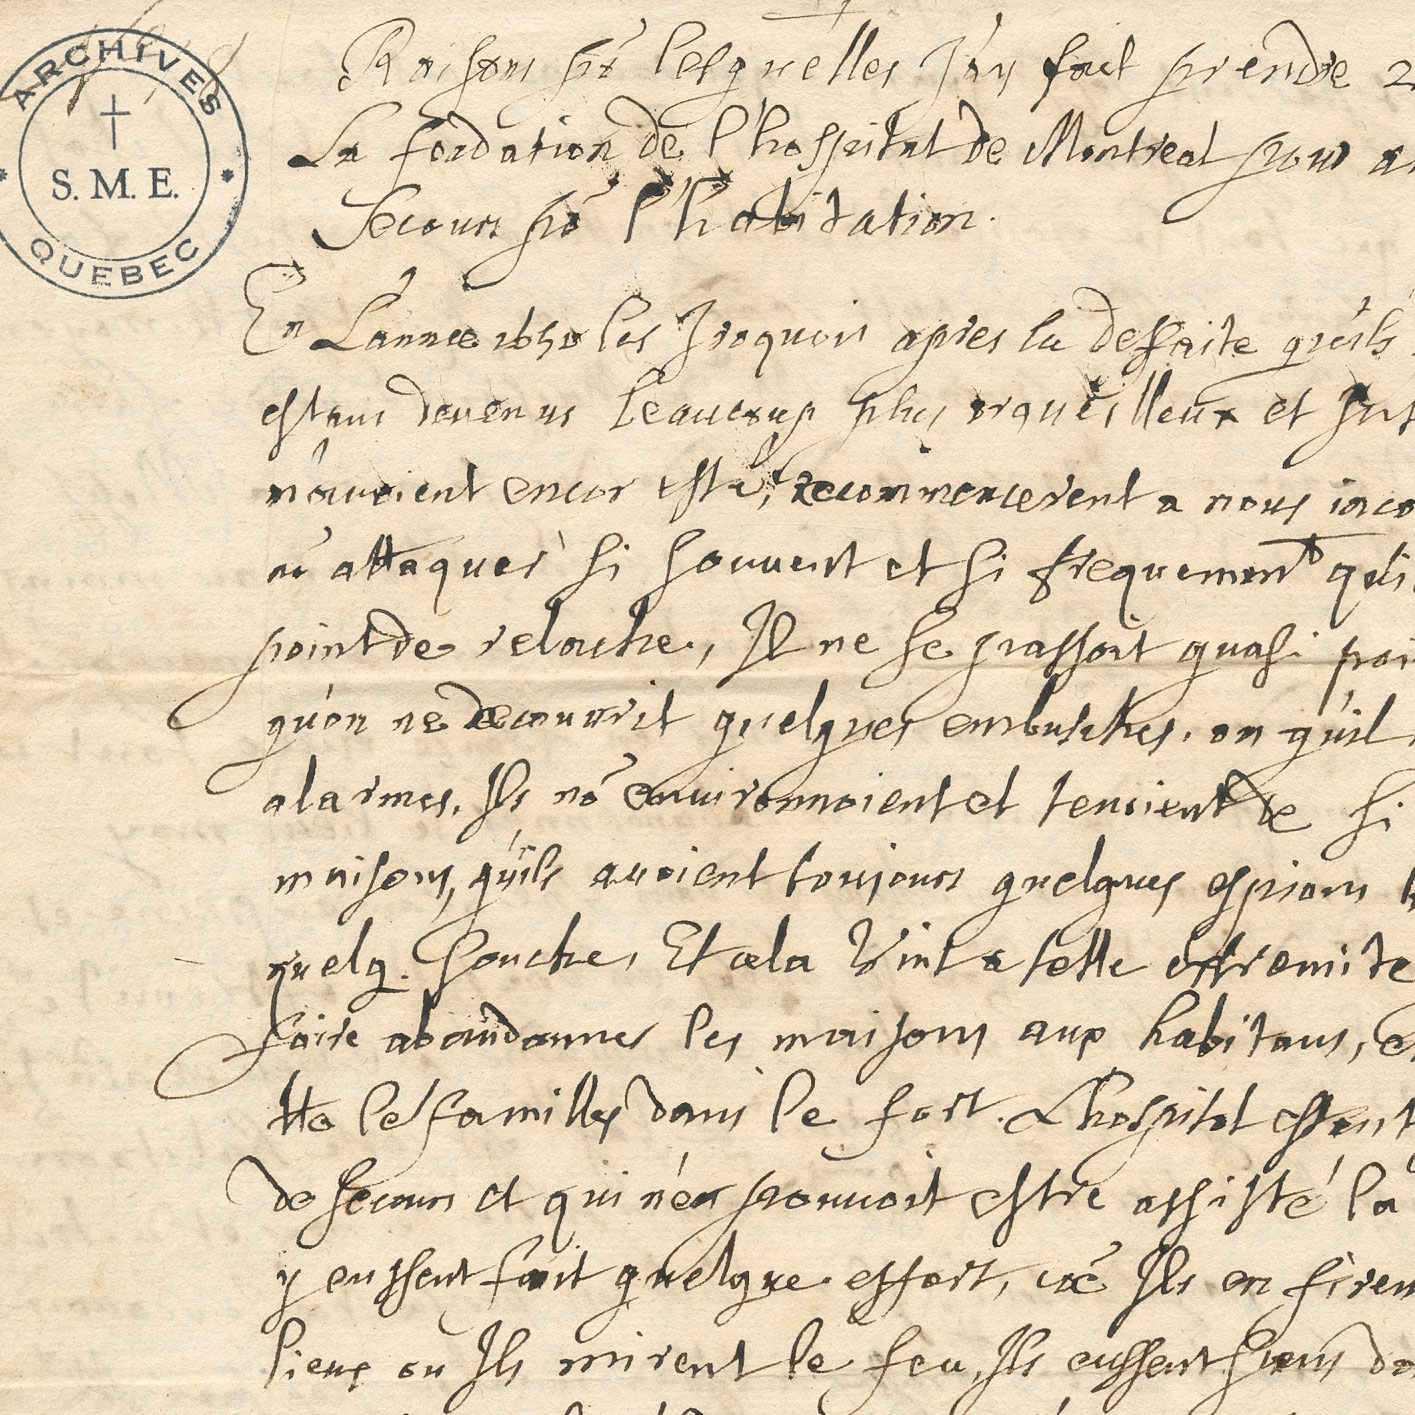 ARCHIVES
S. M. E.
QUEBEC
Raisons po^r lesquelles J'ay fait prendre 2
La fondation de l'hospital de Montreal pour
Secours po^r l'habitation.
En L'annee 1650 les Iroquois apres la defaite qu'ils
estans devenus beaucoup plus orgueilleux et
n'avoient encor esté, recommencerent a nous
attaquer si souvent et si frequemen^t
point de relache, Il ne se passoit quasi
qu'on ne decouvrit quelques embusches, ou qu'il
alarmes, Ils no^s environnoient et tenoient de si
maisons, qu'ils avoient toujours quelques espions
quelq. souche, Et cela vint a telle extremite
faire abandonner les maisons aux habitans,
les familles dans le fort. L'hospital estant
de secours et qui n'en pouvoit estre assisté la
y eussent fait quelque effort, Ils en firen
lieux ou Ils mirent le feu, Ils eussent